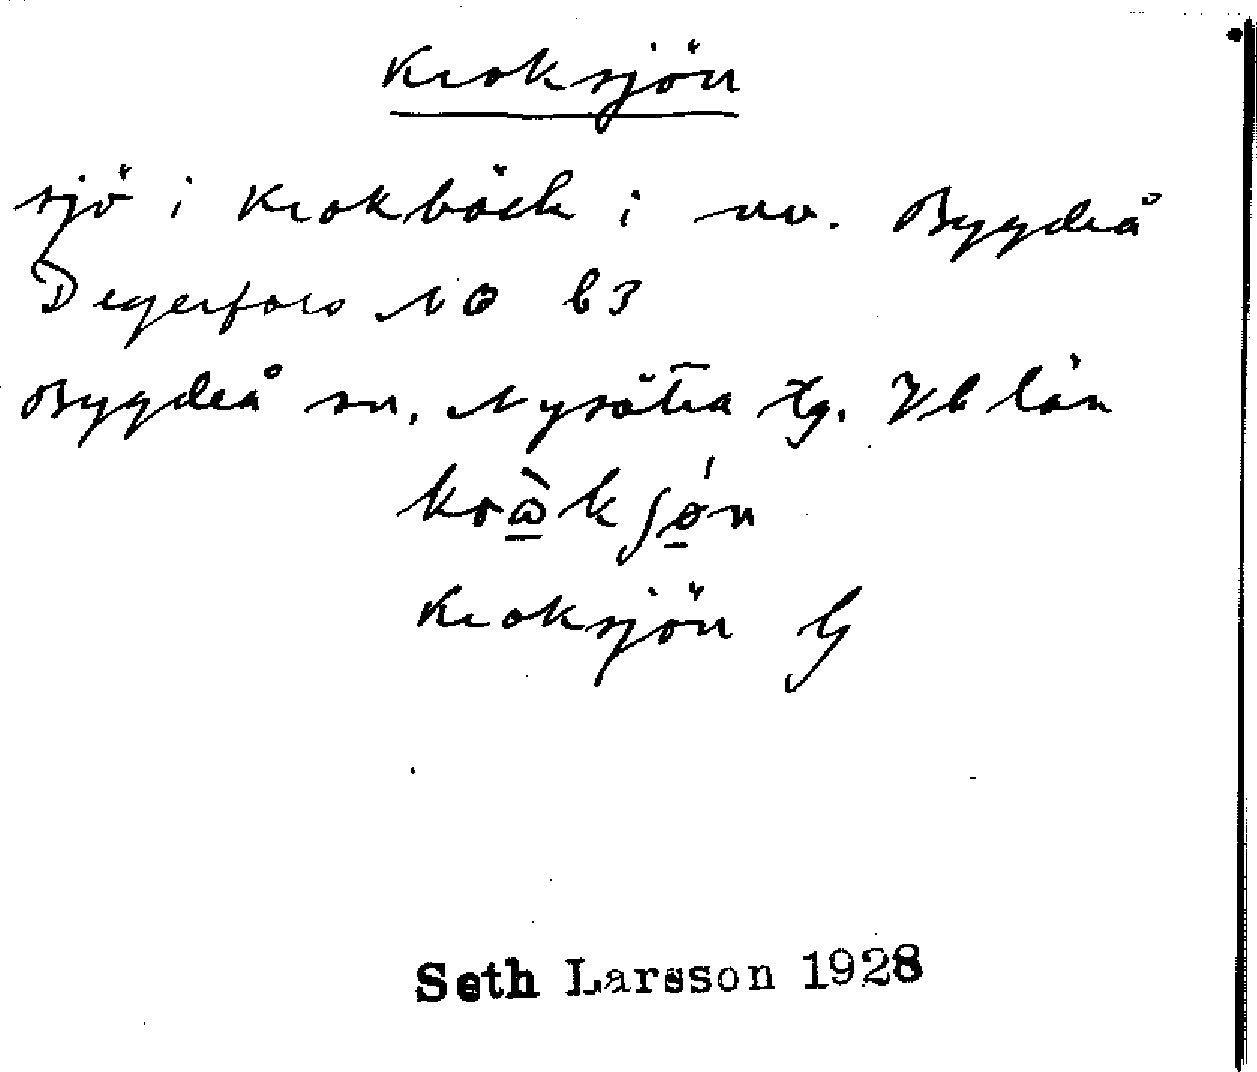 Kroksjön
sjö i Krokbäck i nv. Bygdeå
Degerfors NO b3
Bygdeå sn, Nysätra tg. Vb län
Kroksjön G
Seth Larsson 1928